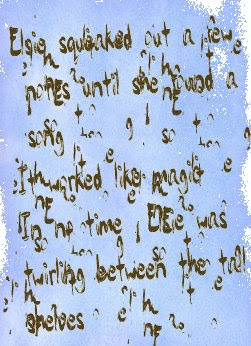 Elsie squeaked out a few
notes until she found a
song
It worked like magic
In no time Elsie was
twirling between the tall
shelves